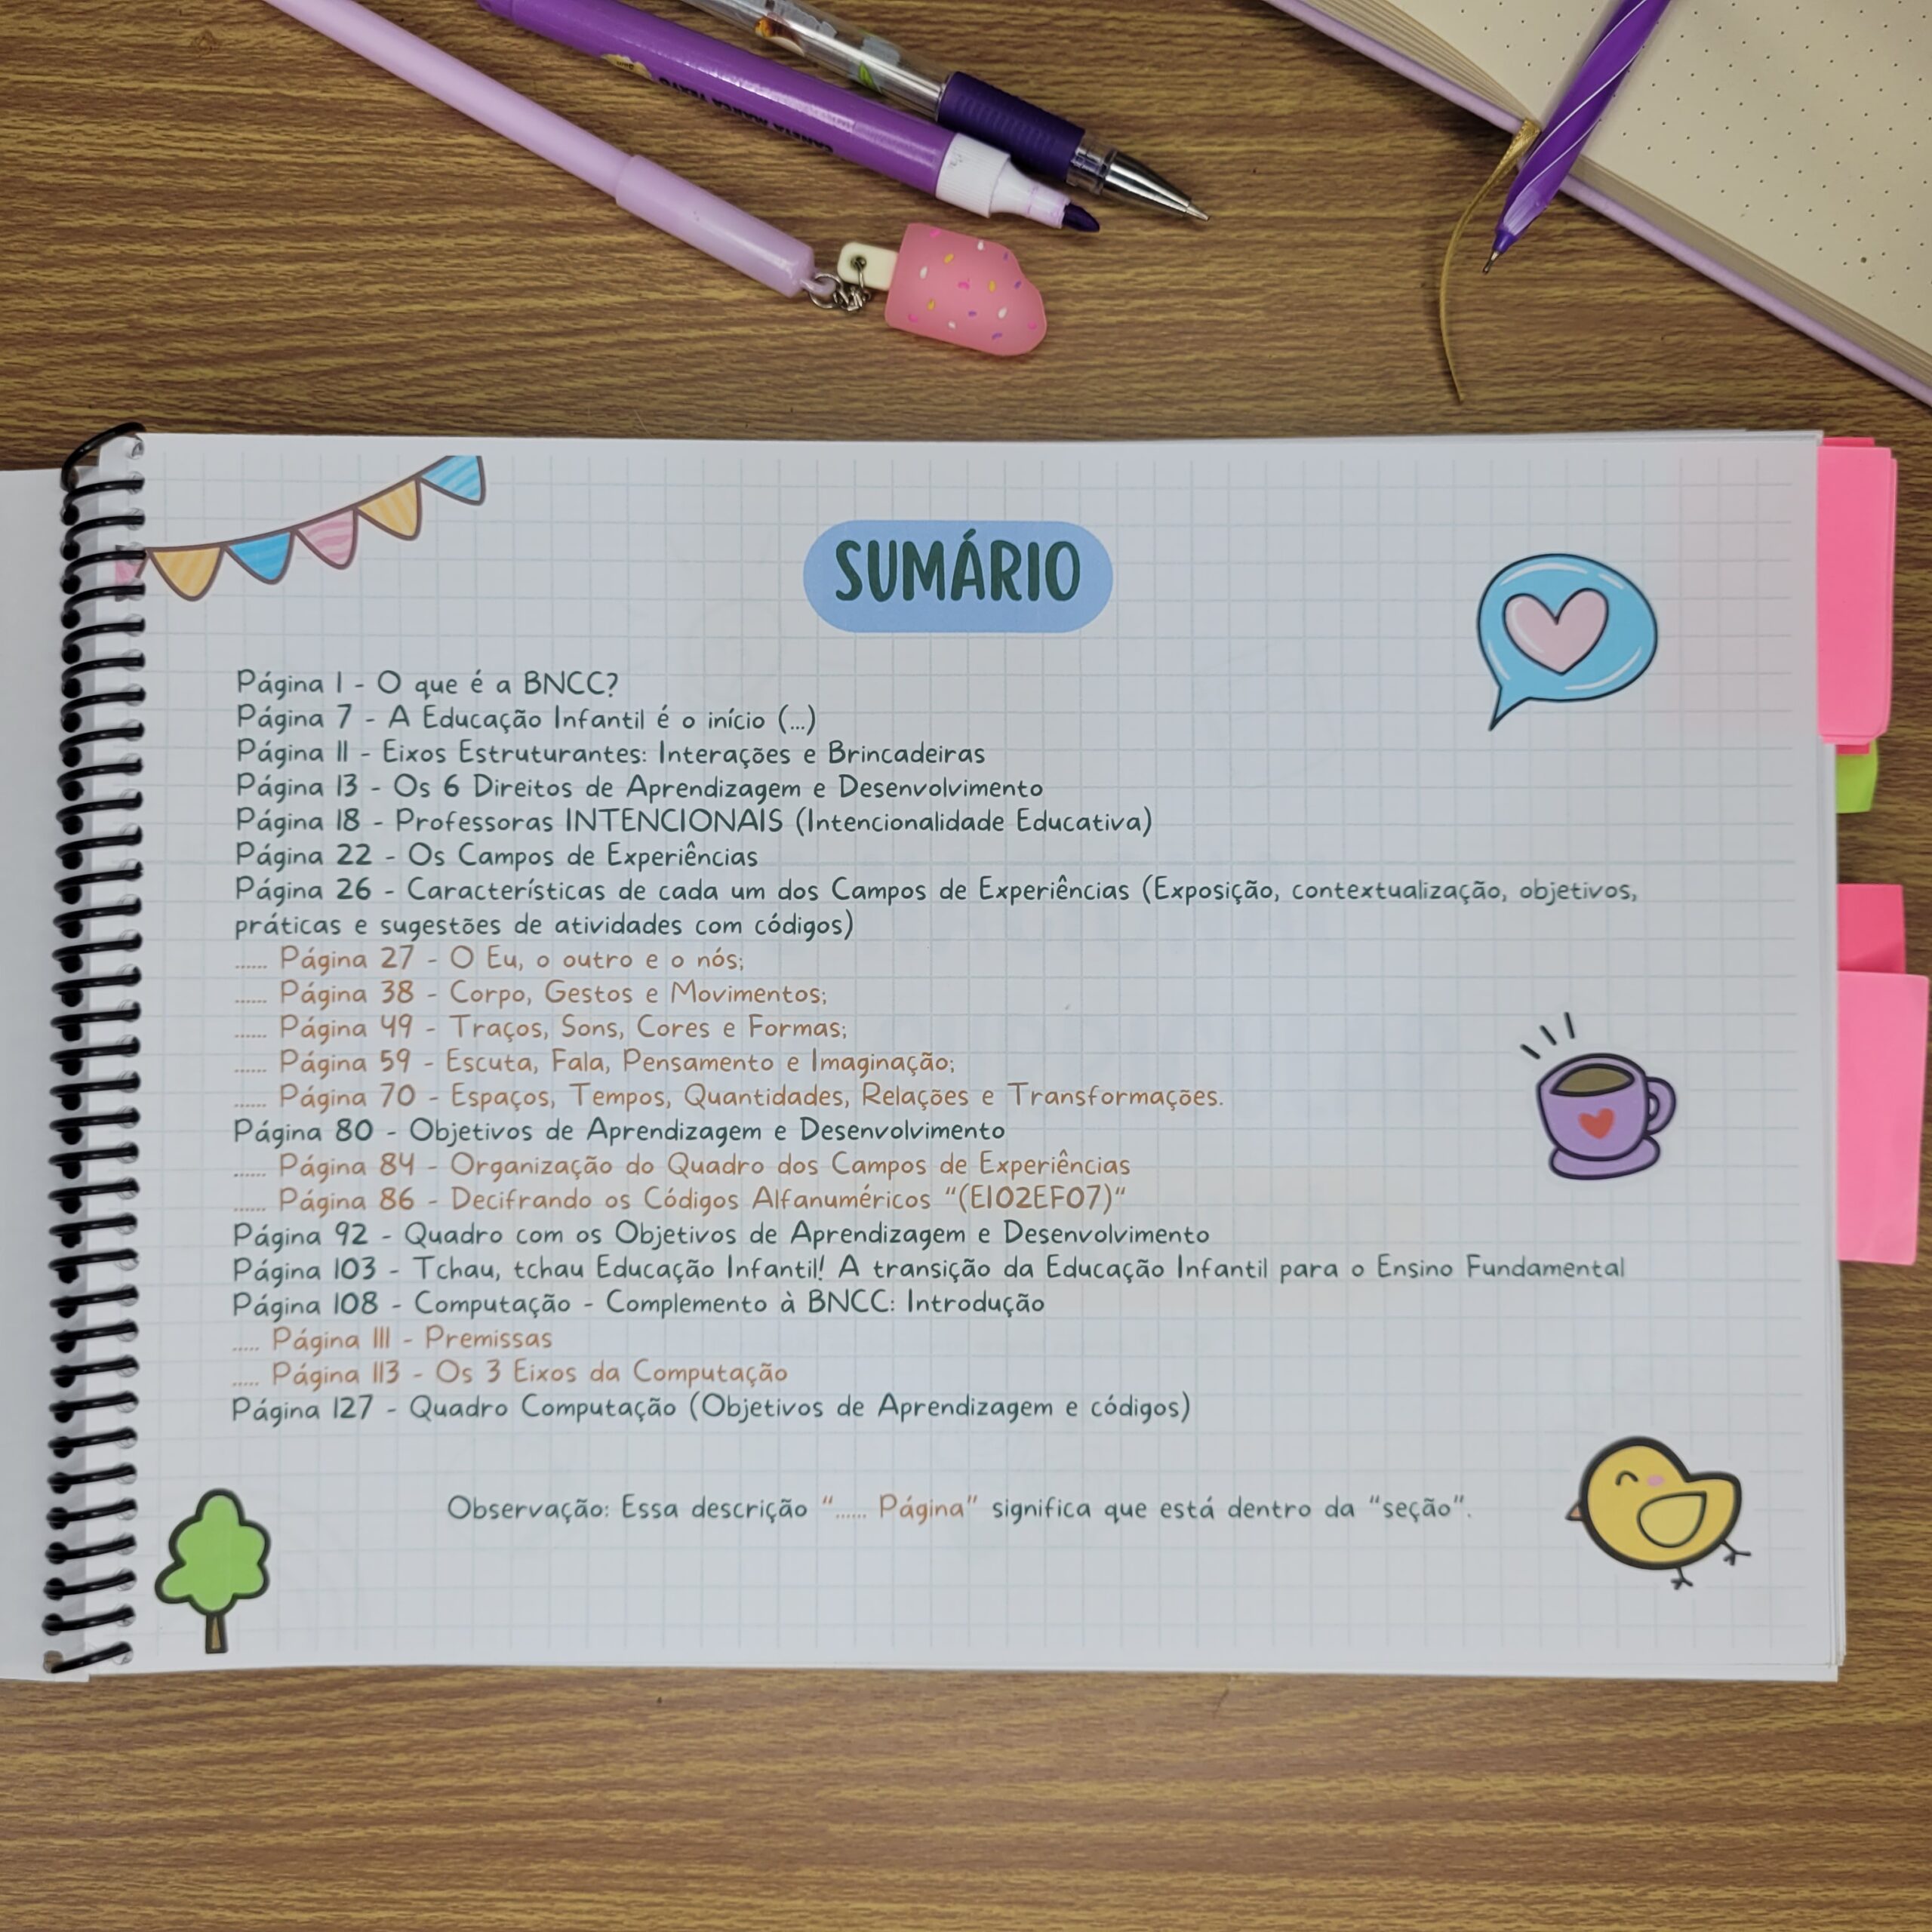 SUMÁRIO
Página 1 - O que é a BNCC?
Página 7 - A Educação Infantil é o início (...)
Página 11 - Eixos Estruturantes: Interações e Brincadeiras
Página 13 - Os 6 Direitos de Aprendizagem e Desenvolvimento
Página 18 - Professoras INTENCIONAIS (Intencionalidade Educativa)
Página 22 - Os Campos de Experiências
Página 26 - Características de cada um dos Campos de Experiências (Exposição, contextualização, objetivos,
práticas e sugestões de atividades com códigos)
...... Página 27 - O Eu, o outro e o nós;
...... Página 38 - Corpo, Gestos e Movimentos;
...... Página 49 - Traços, Sons, Cores e Formas;
...... Página 59 - Escuta, Fala, Pensamento e Imaginação;
...... Página 70 - Espaços, Tempos, Quantidades, Relações e Transformações.
Página 80 - Objetivos de Aprendizagem e Desenvolvimento
...... Página 84 - Organização do Quadro dos Campos de Experiências
...... Página 86 - Decifrando os Códigos Alfanuméricos "(EI02EF07)"
Página 92 - Quadro com os Objetivos de Aprendizagem e Desenvolvimento
Página 103 - Tchau, tchau Educação Infantil! A transição da Educação Infantil para o Ensino Fundamental
Página 108 - Computação - Complemento à BNCC: Introdução
..... Página 111 - Premissas
..... Página 113 - Os 3 Eixos da Computação
Página 127 - Quadro Computação (Objetivos de Aprendizagem e códigos)
Observação: Essa descrição "...... Página" significa que está dentro da "seção".